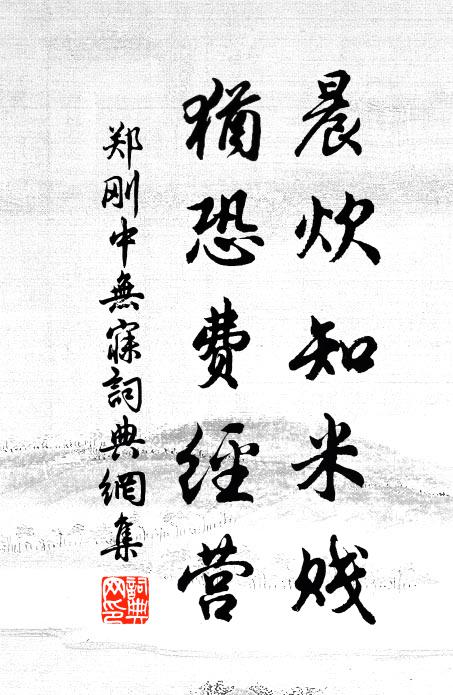 晨炊知米贱
猶恐費經营
郑刚中無寐詞典網集
詞典网印